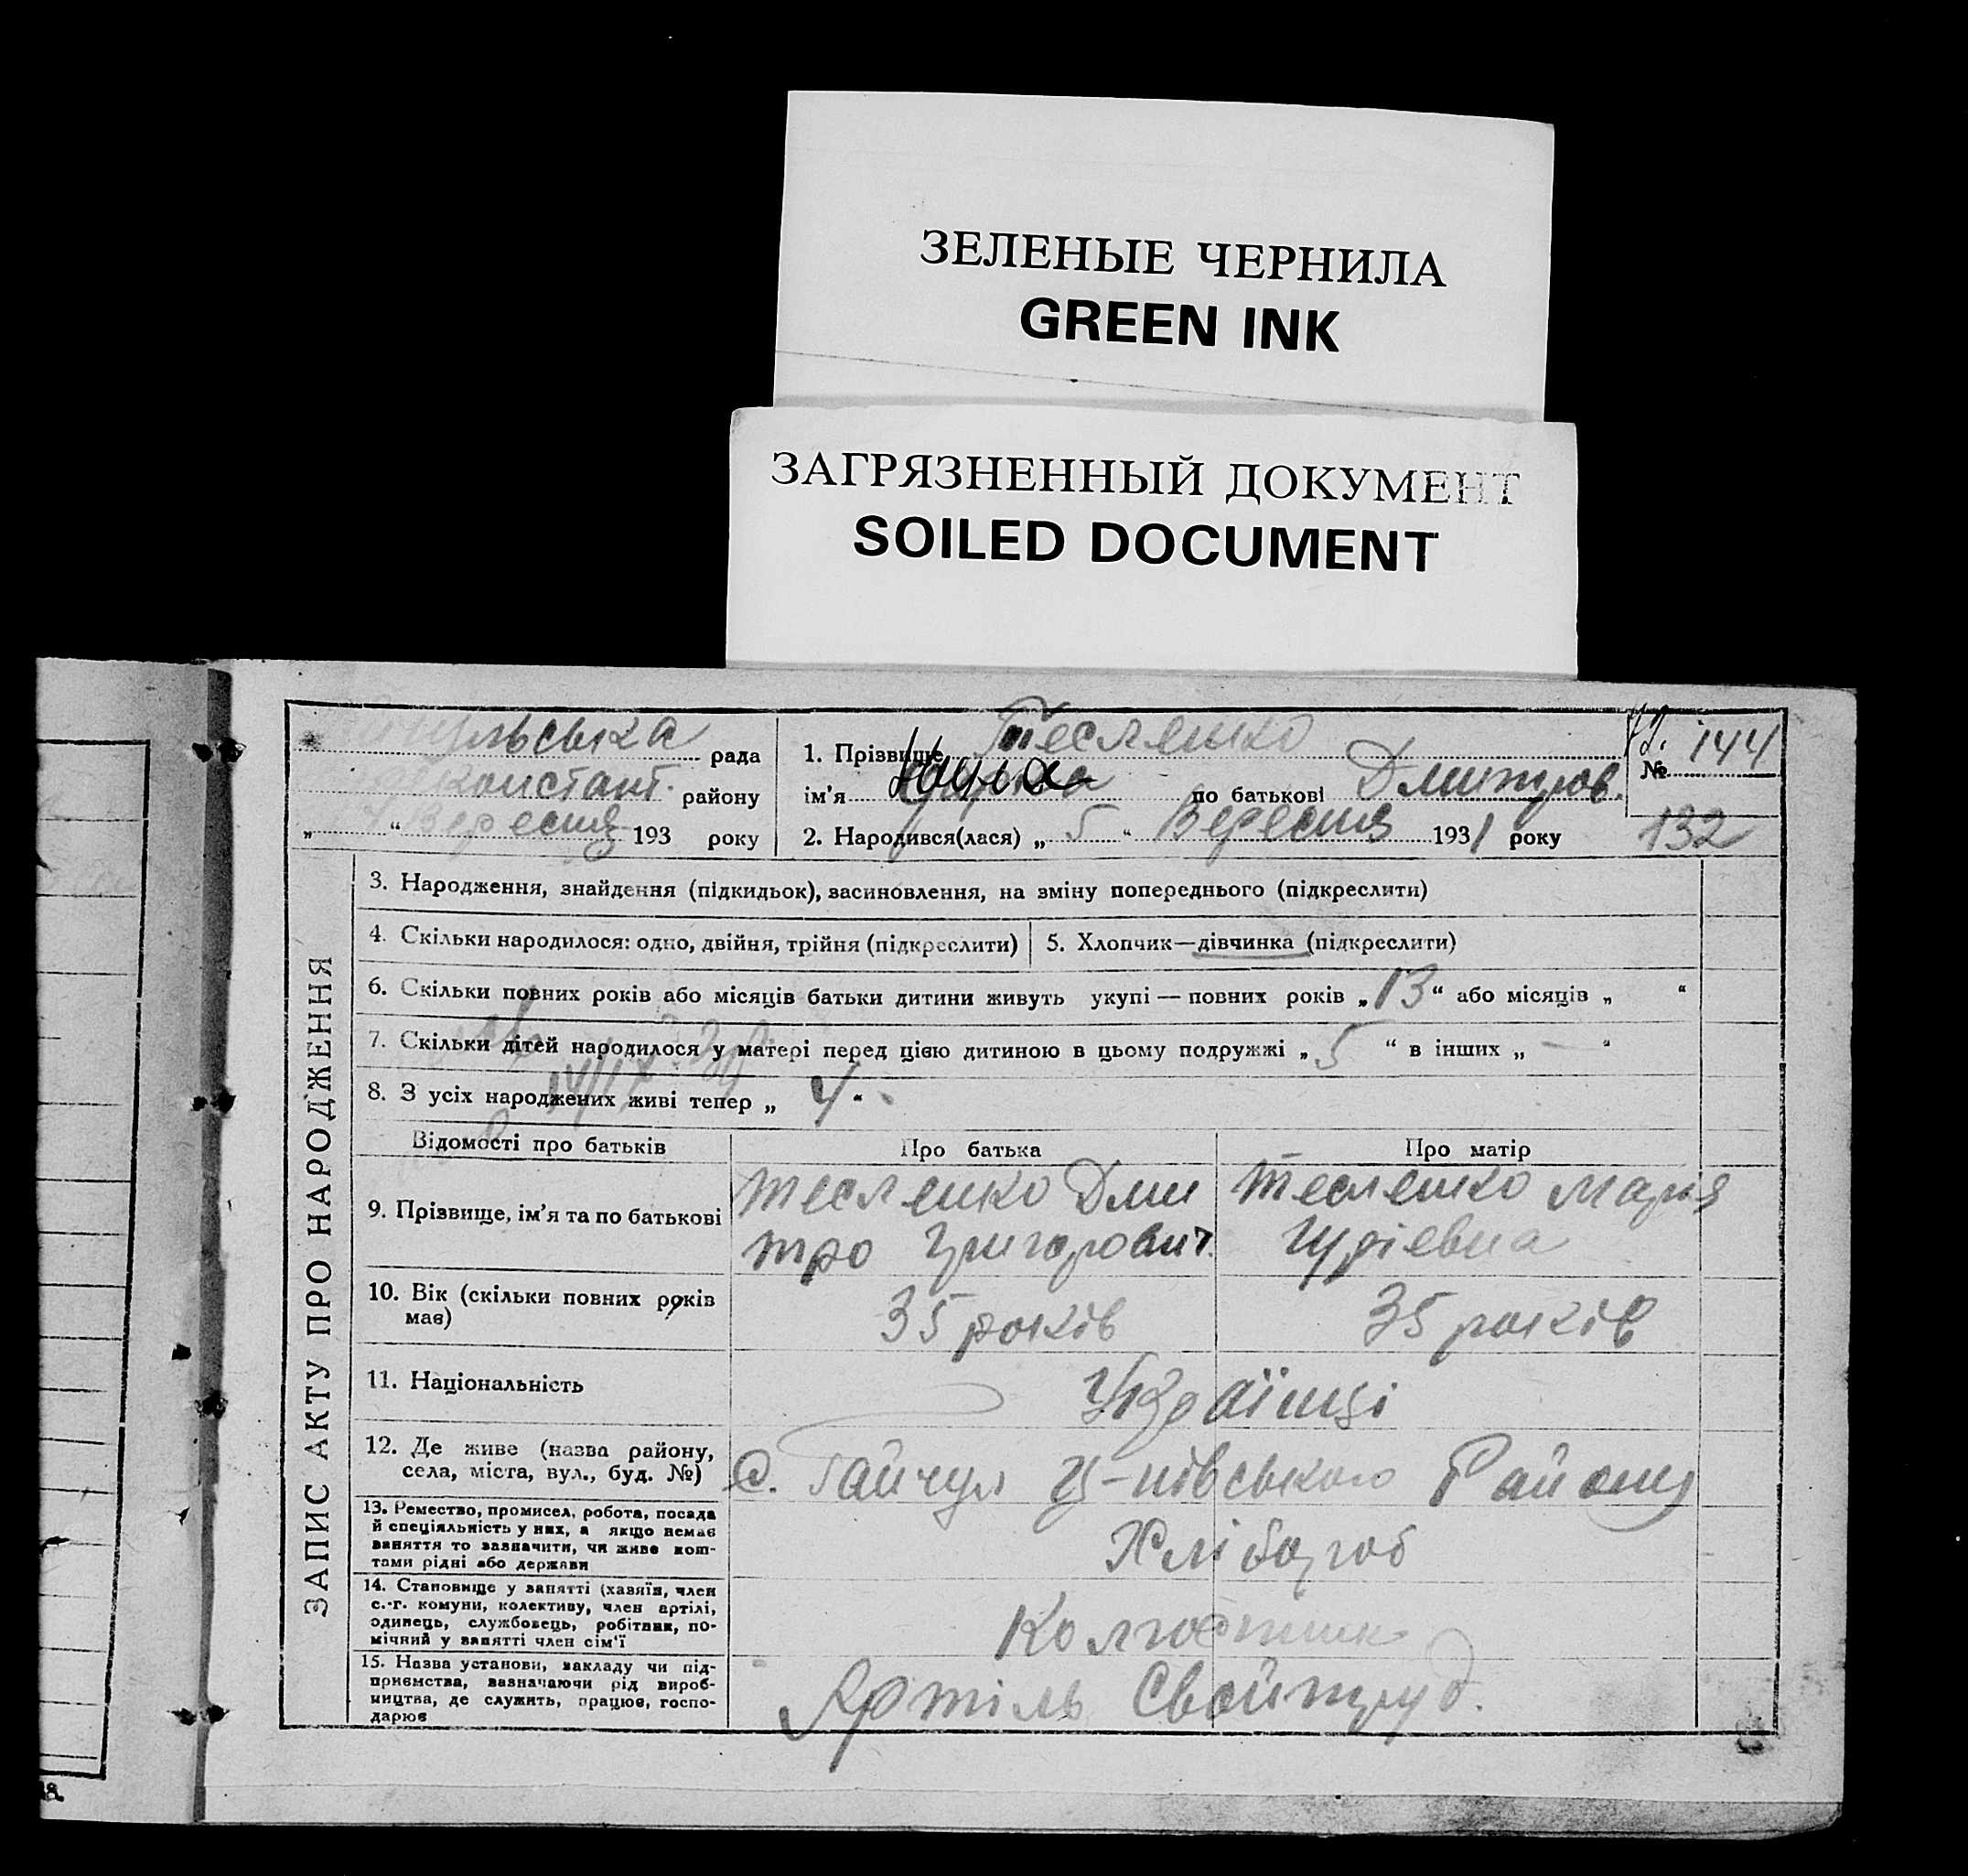 ЗЕЛЕНЫЕ ЧЕРНИЛА
GREEN INK
ЗАГРЯЗНЕННЫЙ ДОКУМЕНТ
SOILED DOCUMENT
рада
констант. району
„ “ Вересня 193 року
1. Прізвище Тесленко
ім’я по батькові Дмитров.
2. Народився(лася) „ 5 “ Вересня 1931 року
№ 144
132
ЗАПИС АКТУ ПРО НАРОДЖЕННЯ
3. Народження, знайдення (підкидьок), засиновлення, на зміну попереднього (підкреслити)
4. Скільки народилося: одно, двійня, трійня (підкреслити)
5. Хлопчик—дівчинка (підкреслити)
6. Скільки повних років або місяців батьки дитини живуть укупі — повних років „ 13 “ або місяців „ “
7. Скільки дітей народилося у матері перед цією дитиною в цьому подружжі „ 5 “ в інших „ — “
8. З усіх народжених живі тепер „ 4 “
Відомості про батьків
Про батька
Про матір
9. Прізвище, ім’я та по батькові
Тесленко Дми
тро Григорович
Тесленко Марія
Гуріевна
10. Вік (скільки повних років
має)
35 років
35 років
11. Національність
Українці
12. Де живе (назва району,
села, міста, вул., буд. №)
С. Гайчул Ц-нівського Району
13. Ремество, промисел, робота, посада
й спеціяльність у них, а якщо немає
заняття то зазначити, чи живе кош-
тами рідні або держави
Хлібороб
14. Становище у занятті (хазяїн, член
с.-г. комуни, колективу, член артілі,
одинець, службовець, робітник, по-
мічний у занятті член сім’ї
Колгоспник
15. Назва установи, закладу чи під-
приємства, зазначаючи рід вироб-
ництва, де служить, працює, госпо-
дарює
Артіль Свойтруд.